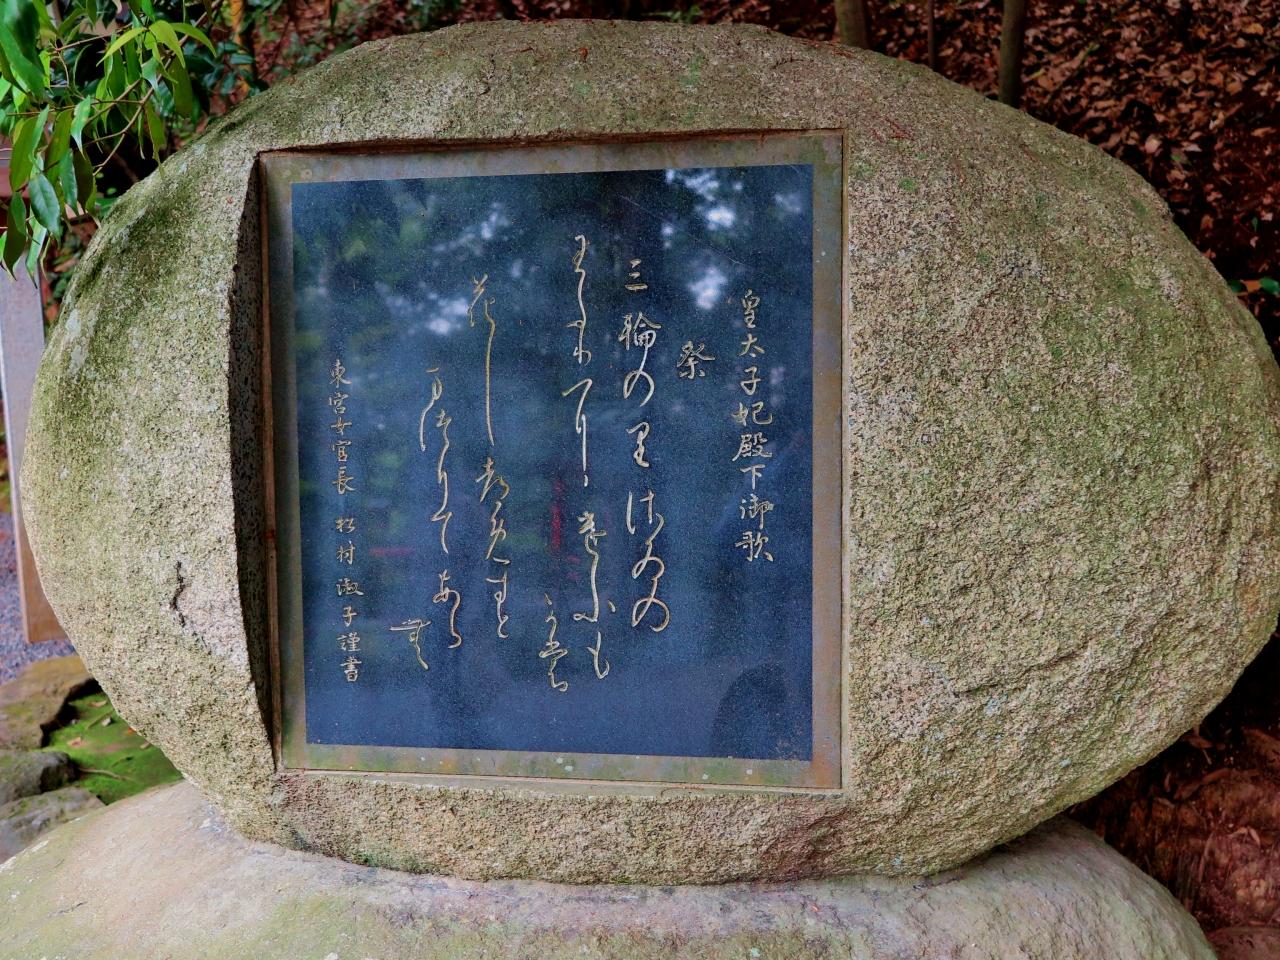 皇太子妃殿下御歌
祭
三輪の里さゐの
わたりに今日も
かも
花しづめすと
まつりてあら
無
東宮女官長 松村淑子謹書